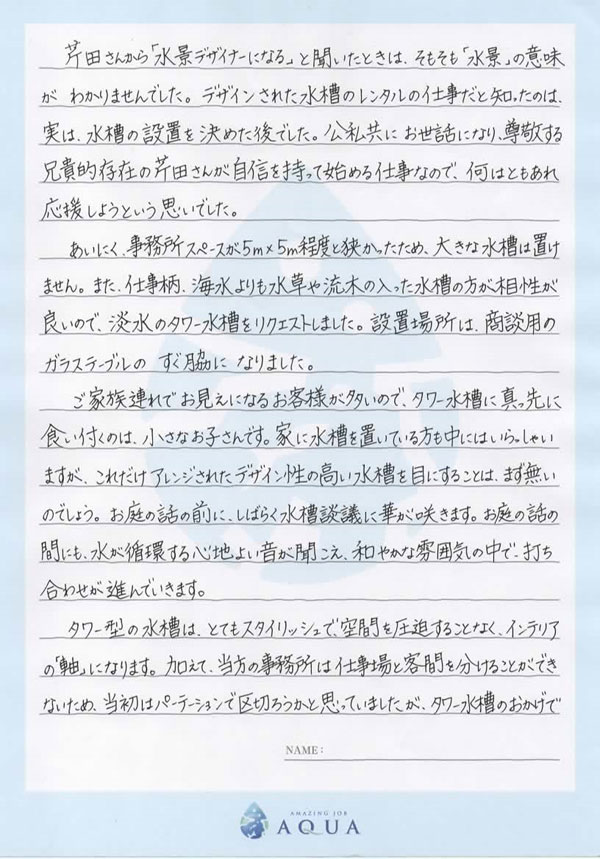 芹田さんから「水景デザイナーになる。」と聞いたときは、そもそも「水景」の意味
が わかりませんでした。デザインされた水槽のレンタルの仕事だと知ったのは、
実は、水槽の設置を決めた後でした。公私共にお世話になり、尊敬する
兄貴的存在の芹田さんが自信を持って始める仕事なので、何はともあれ
応援しようという思いでした。
あいにく、事務所スペースが5m×5m程度と狭かったため、大きな水槽は置け
ません。また、仕事柄、海水よりも水草や流木の入った水槽の方が相性が
良いので、淡水のタワー水槽をリクエストしました。設置場所は、商談用の
ガラステーブルの すぐ脇に なりました。
ご家族連れでお見えになるお客様が多いので、タワー水槽に真っ先に
食い付くのは、小さなお子さんです。家に水槽を置いている方も中にはいらっしゃい
ますが、これだけアレンジされたデザイン性の高い水槽を目にすることは、まず無い
のでしょう。お庭の話の前に、しばらく水槽談議に華が咲きます。お庭の話の
間にも、水が循環する心地よい音が聞こえ、和やかな雰囲気の中で打ち
合わせが進んでいきます。
タワー型の水槽は、とてもスタイリッシュで、空間を圧迫することなく、インテリア
の「軸」になります。加えて、当方の事務所は仕事場と客間を分けることができ
ないため、当初はパーテーションで区切ろうかと思っていましたが、タワー水槽のおかげで
NAME:
AMAZING JOB
AQUA